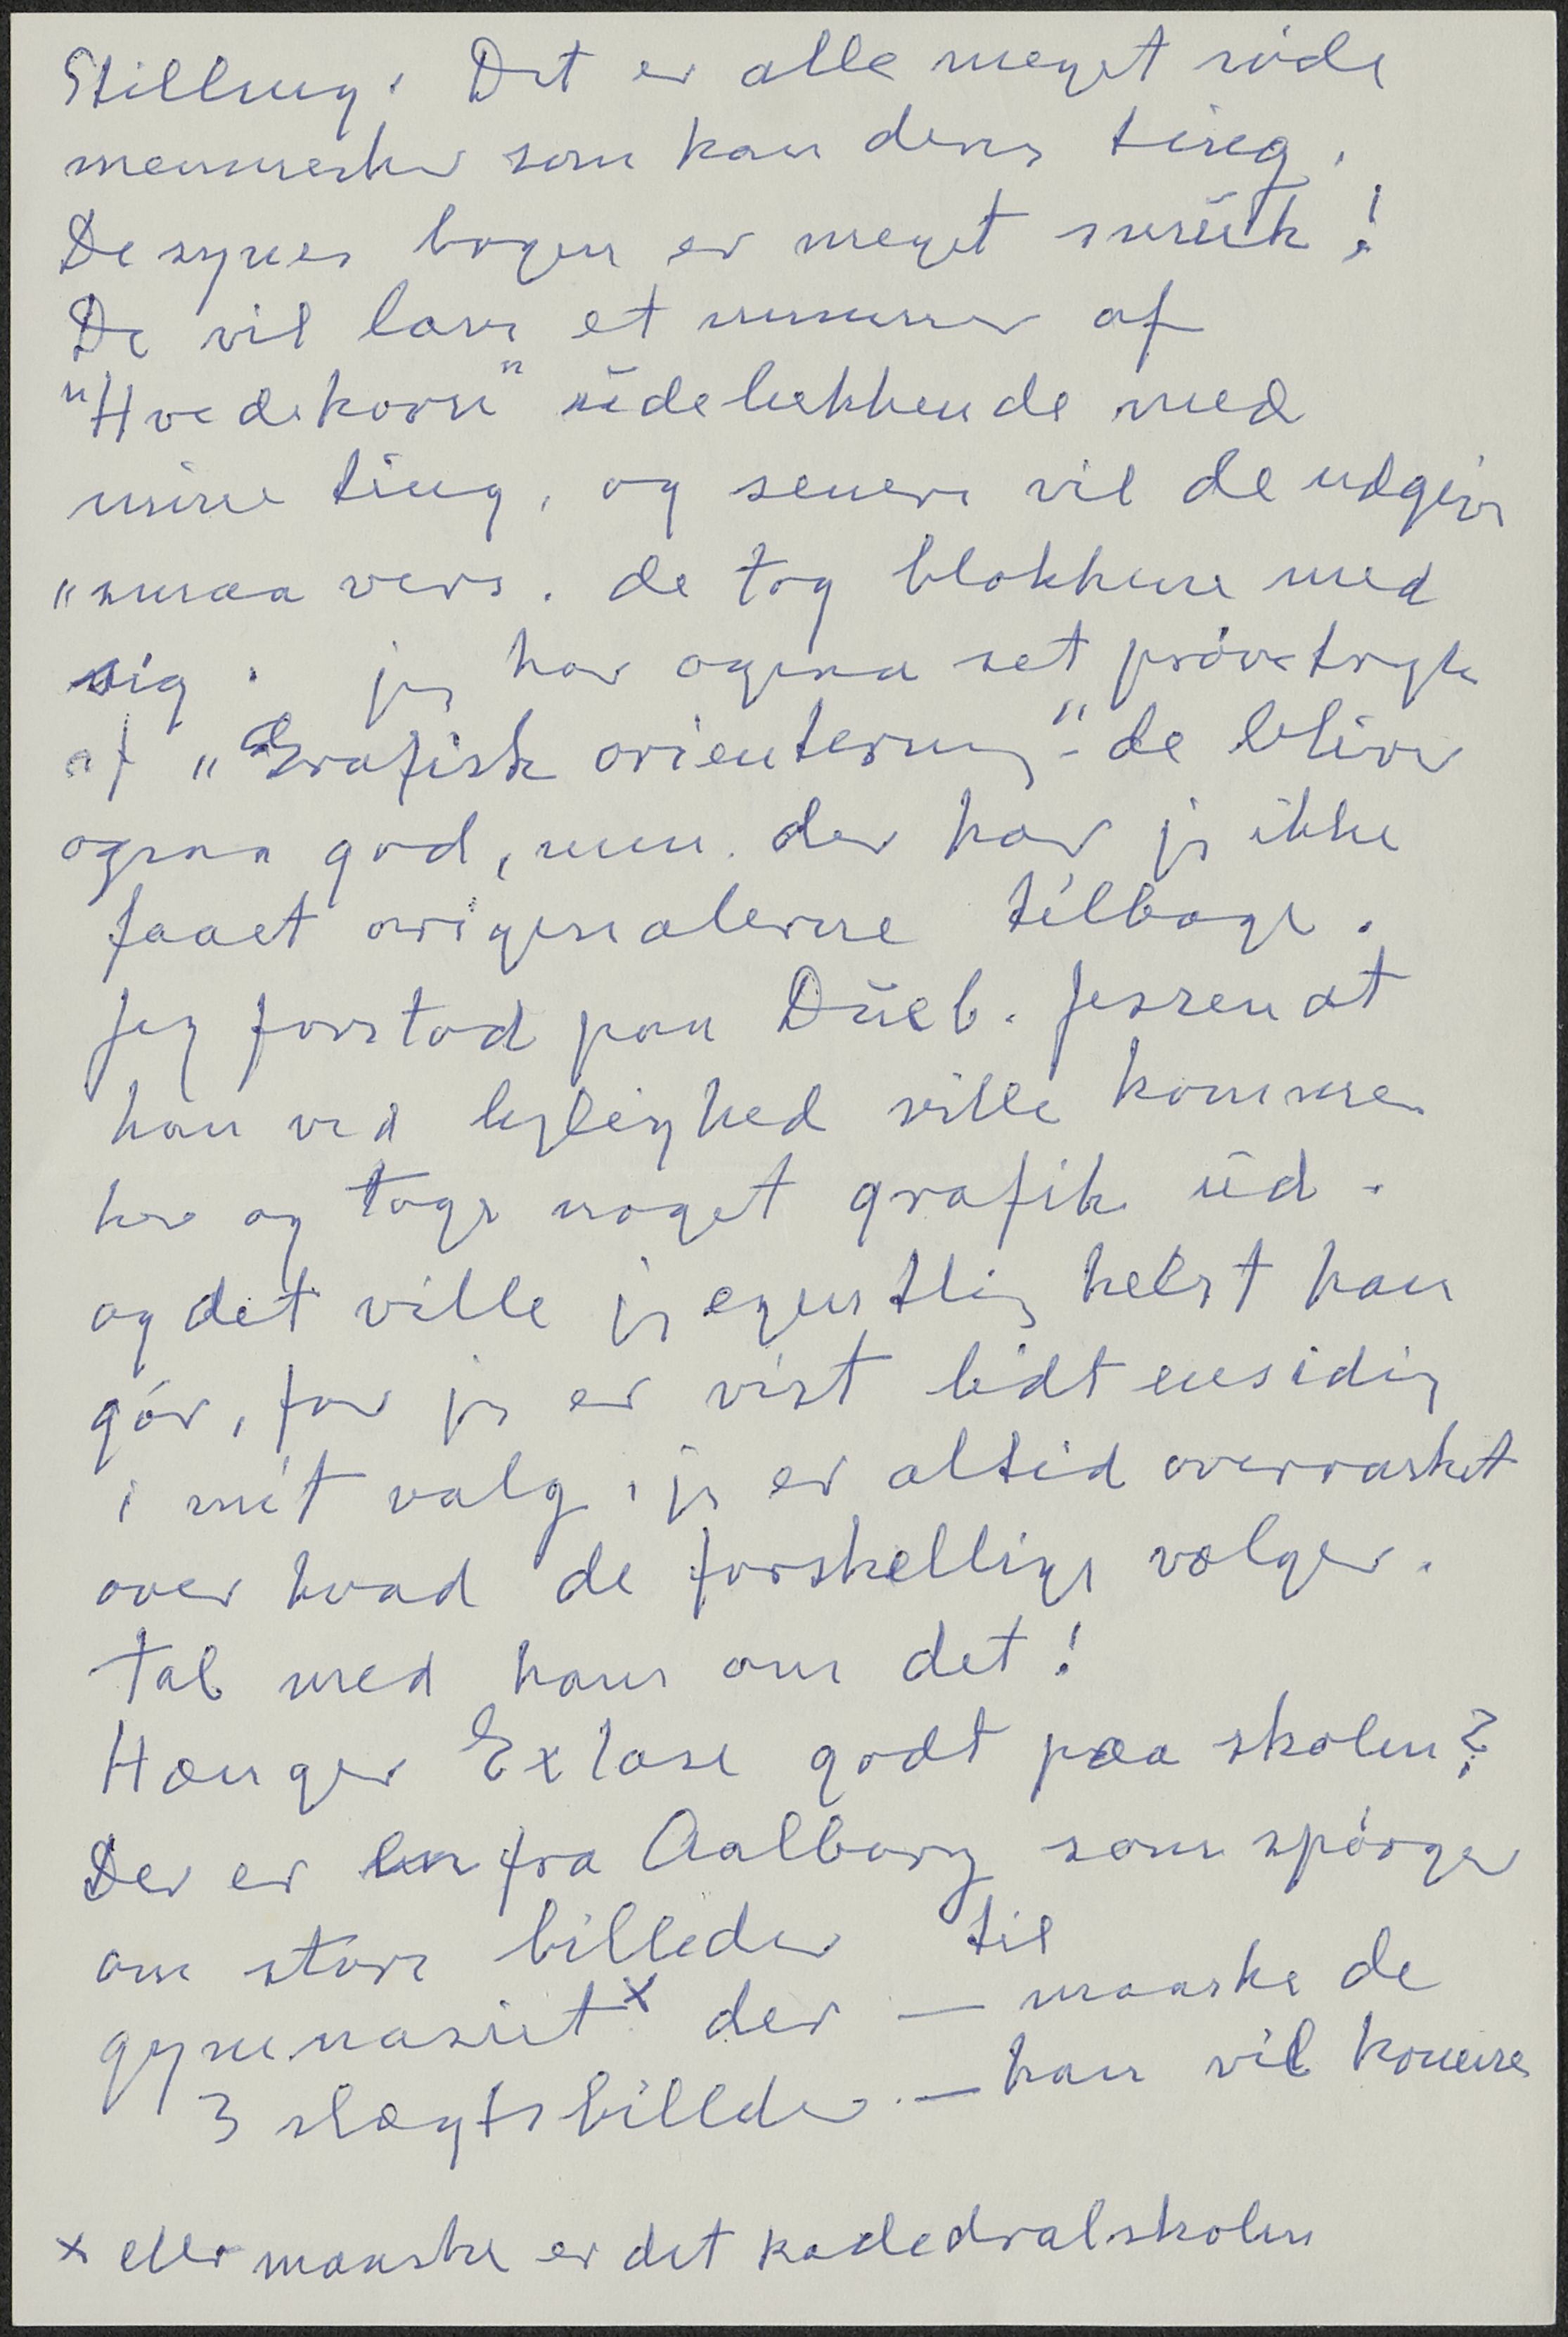 Stilling. Det er alle meget söde
mennesker som kan deres ting.
De synes bogen er meget smük!
De vil lave et nummer af
"Hvedekorn" üdelukkende med
mine ting, og senere vil de udgive
"smaa vers. de tog blokkene med
sig. jeg har ogsaa set prövetryk
af "Grafisk orientering"- de bliver
ogsaa god, men der har jeg ikke
faaet origenalerne tilbage.
Jeg forstod paa Düeb. Jessen at
han ved lejlighed ville komme
her og tage noget grafik üd.
og det ville jeg egentlig helst han
gör, for jeg er vist lidt ensidig
i mit valg, jeg er altid overrasket
over hvad de forskellige vælger.
tal med ham om det!
Hænger Extase godt paa skolen?
Der er en fra Aalborg som spörger
om store billeder til
gymnasiet x der — maaske de
3 slægtsbilleder. — han vil komme
x eller maaske er det kadedralskolen